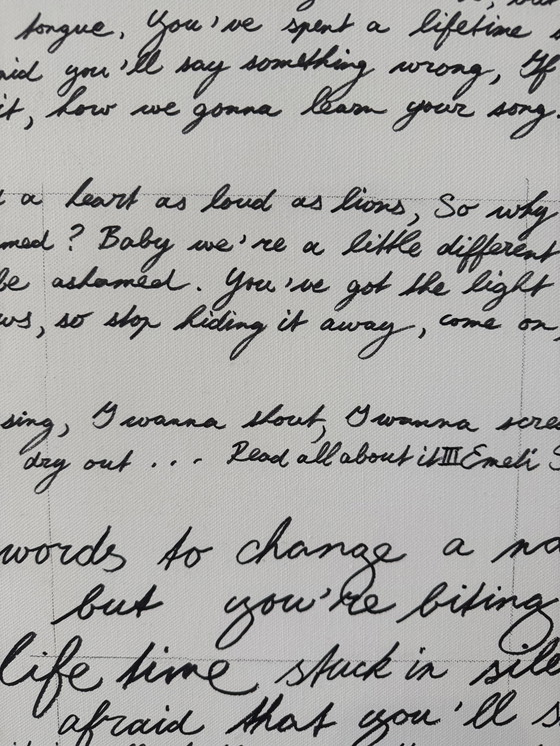 tongue, You've spent a lifetime
you'll say something wrong, If
it, how we gonna learn your song.
a heart as loud as lions, So why
? Baby we're a little different
be ashamed. You've got the light
, so stop hiding it away, come on,
sing, I wanna shout, I wanna
dry out ... Read all about it III Emeli
words to change a
but you're biting
life time stuck in
afraid that you'll